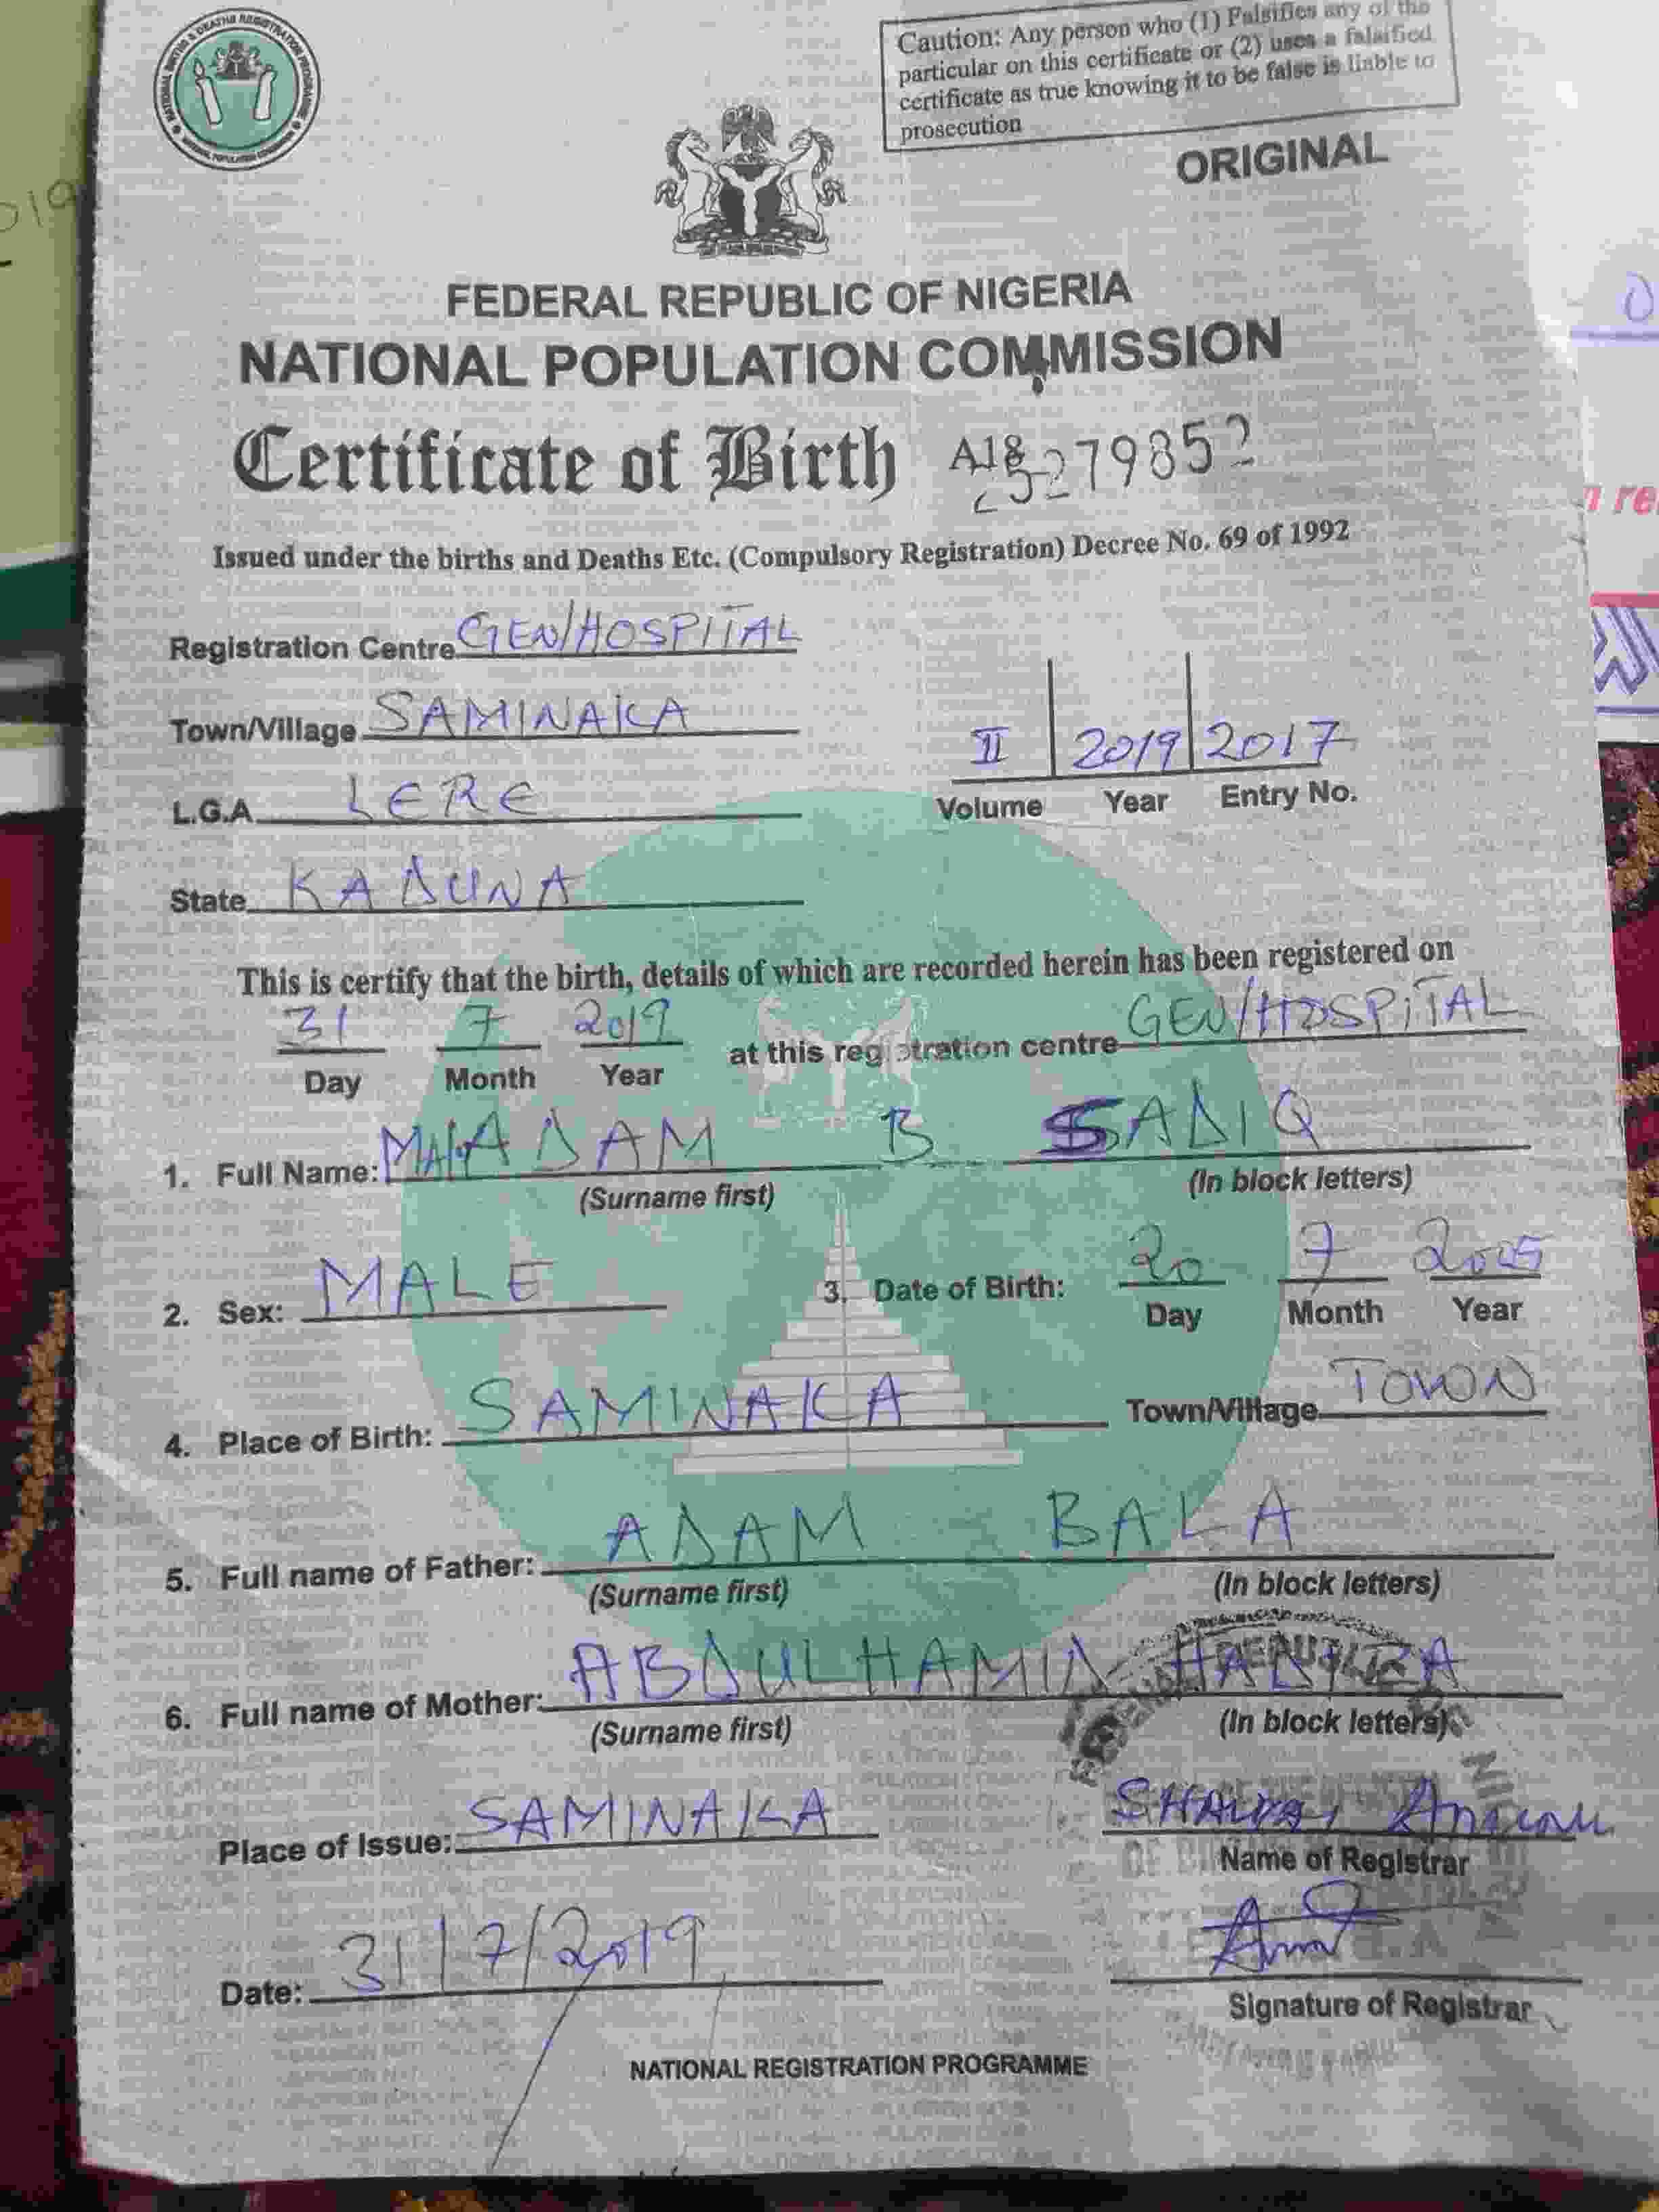 Caution: Any person who (1) Falsifies any of the
particular on this certificate or (2) uses a falsified
certificate as true knowing it to be false is liable to
prosecution
ORIGINAL
FEDERAL REPUBLIC OF NIGERIA
NATIONAL POPULATION COMMISSION
Certificate of Birth A18
Issued under the births and Deaths Etc. (Compulsory Registration) Decree No. 69 of 1992
Registration Centre GEN/HOSPITAL
Town/Village SAMINAKA
II 2019 2017
Volume Year Entry No.
L.G.A. LERE
State KADUNA
This is certify that the birth, details of which are recorded herein has been registered on
31 7 2019 at this registration centre GEN/HOSPITAL
Day Month Year
1. Full Name: ADAM B SADIQ
(Surname first) (In block letters)
2. Sex: MALE 3. Date of Birth: 20 7 2005
Day Month Year
4. Place of Birth: SAMINAKA Town/Village TOWN
5. Full name of Father: ADAM BALA
(Surname first) (In block letters)
6. Full name of Mother: ABDULHAMID
(Surname first) (In block letters)
Place of Issue: SAMINAKA
Name of Registrar
Date: 31/7/2019
Signature of Registrar
NATIONAL REGISTRATION PROGRAMME